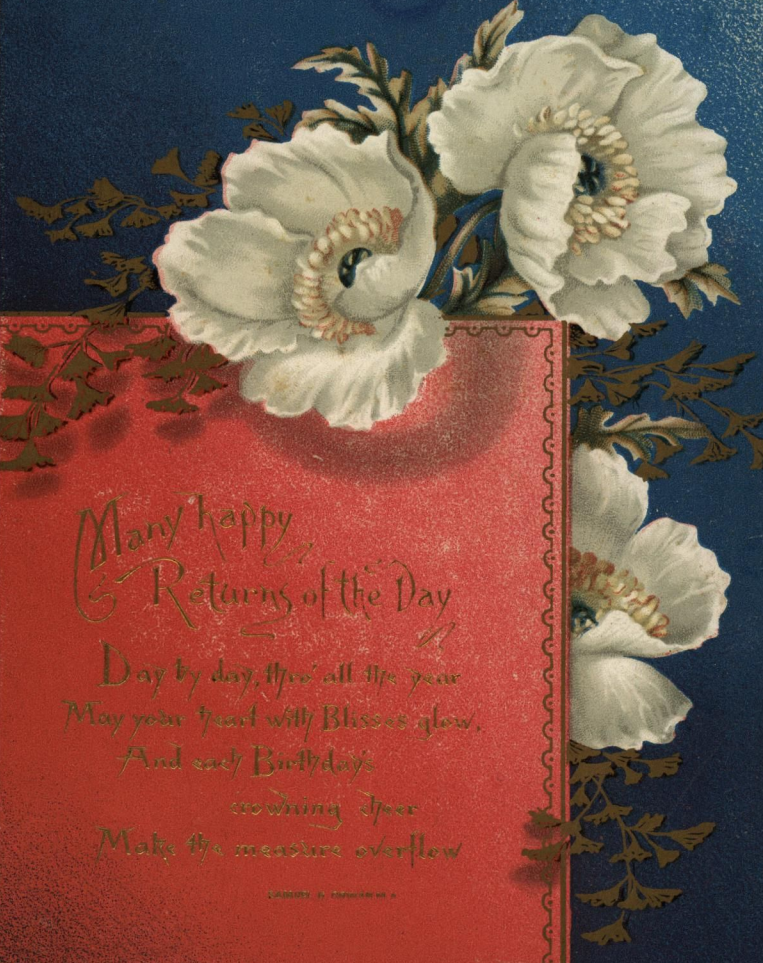 Many happy
Returns of the Day
Day by day, thro' all the year
May your heart with Blisses glow,
And each Birthday's
crowning cheer
Make the measure overflow